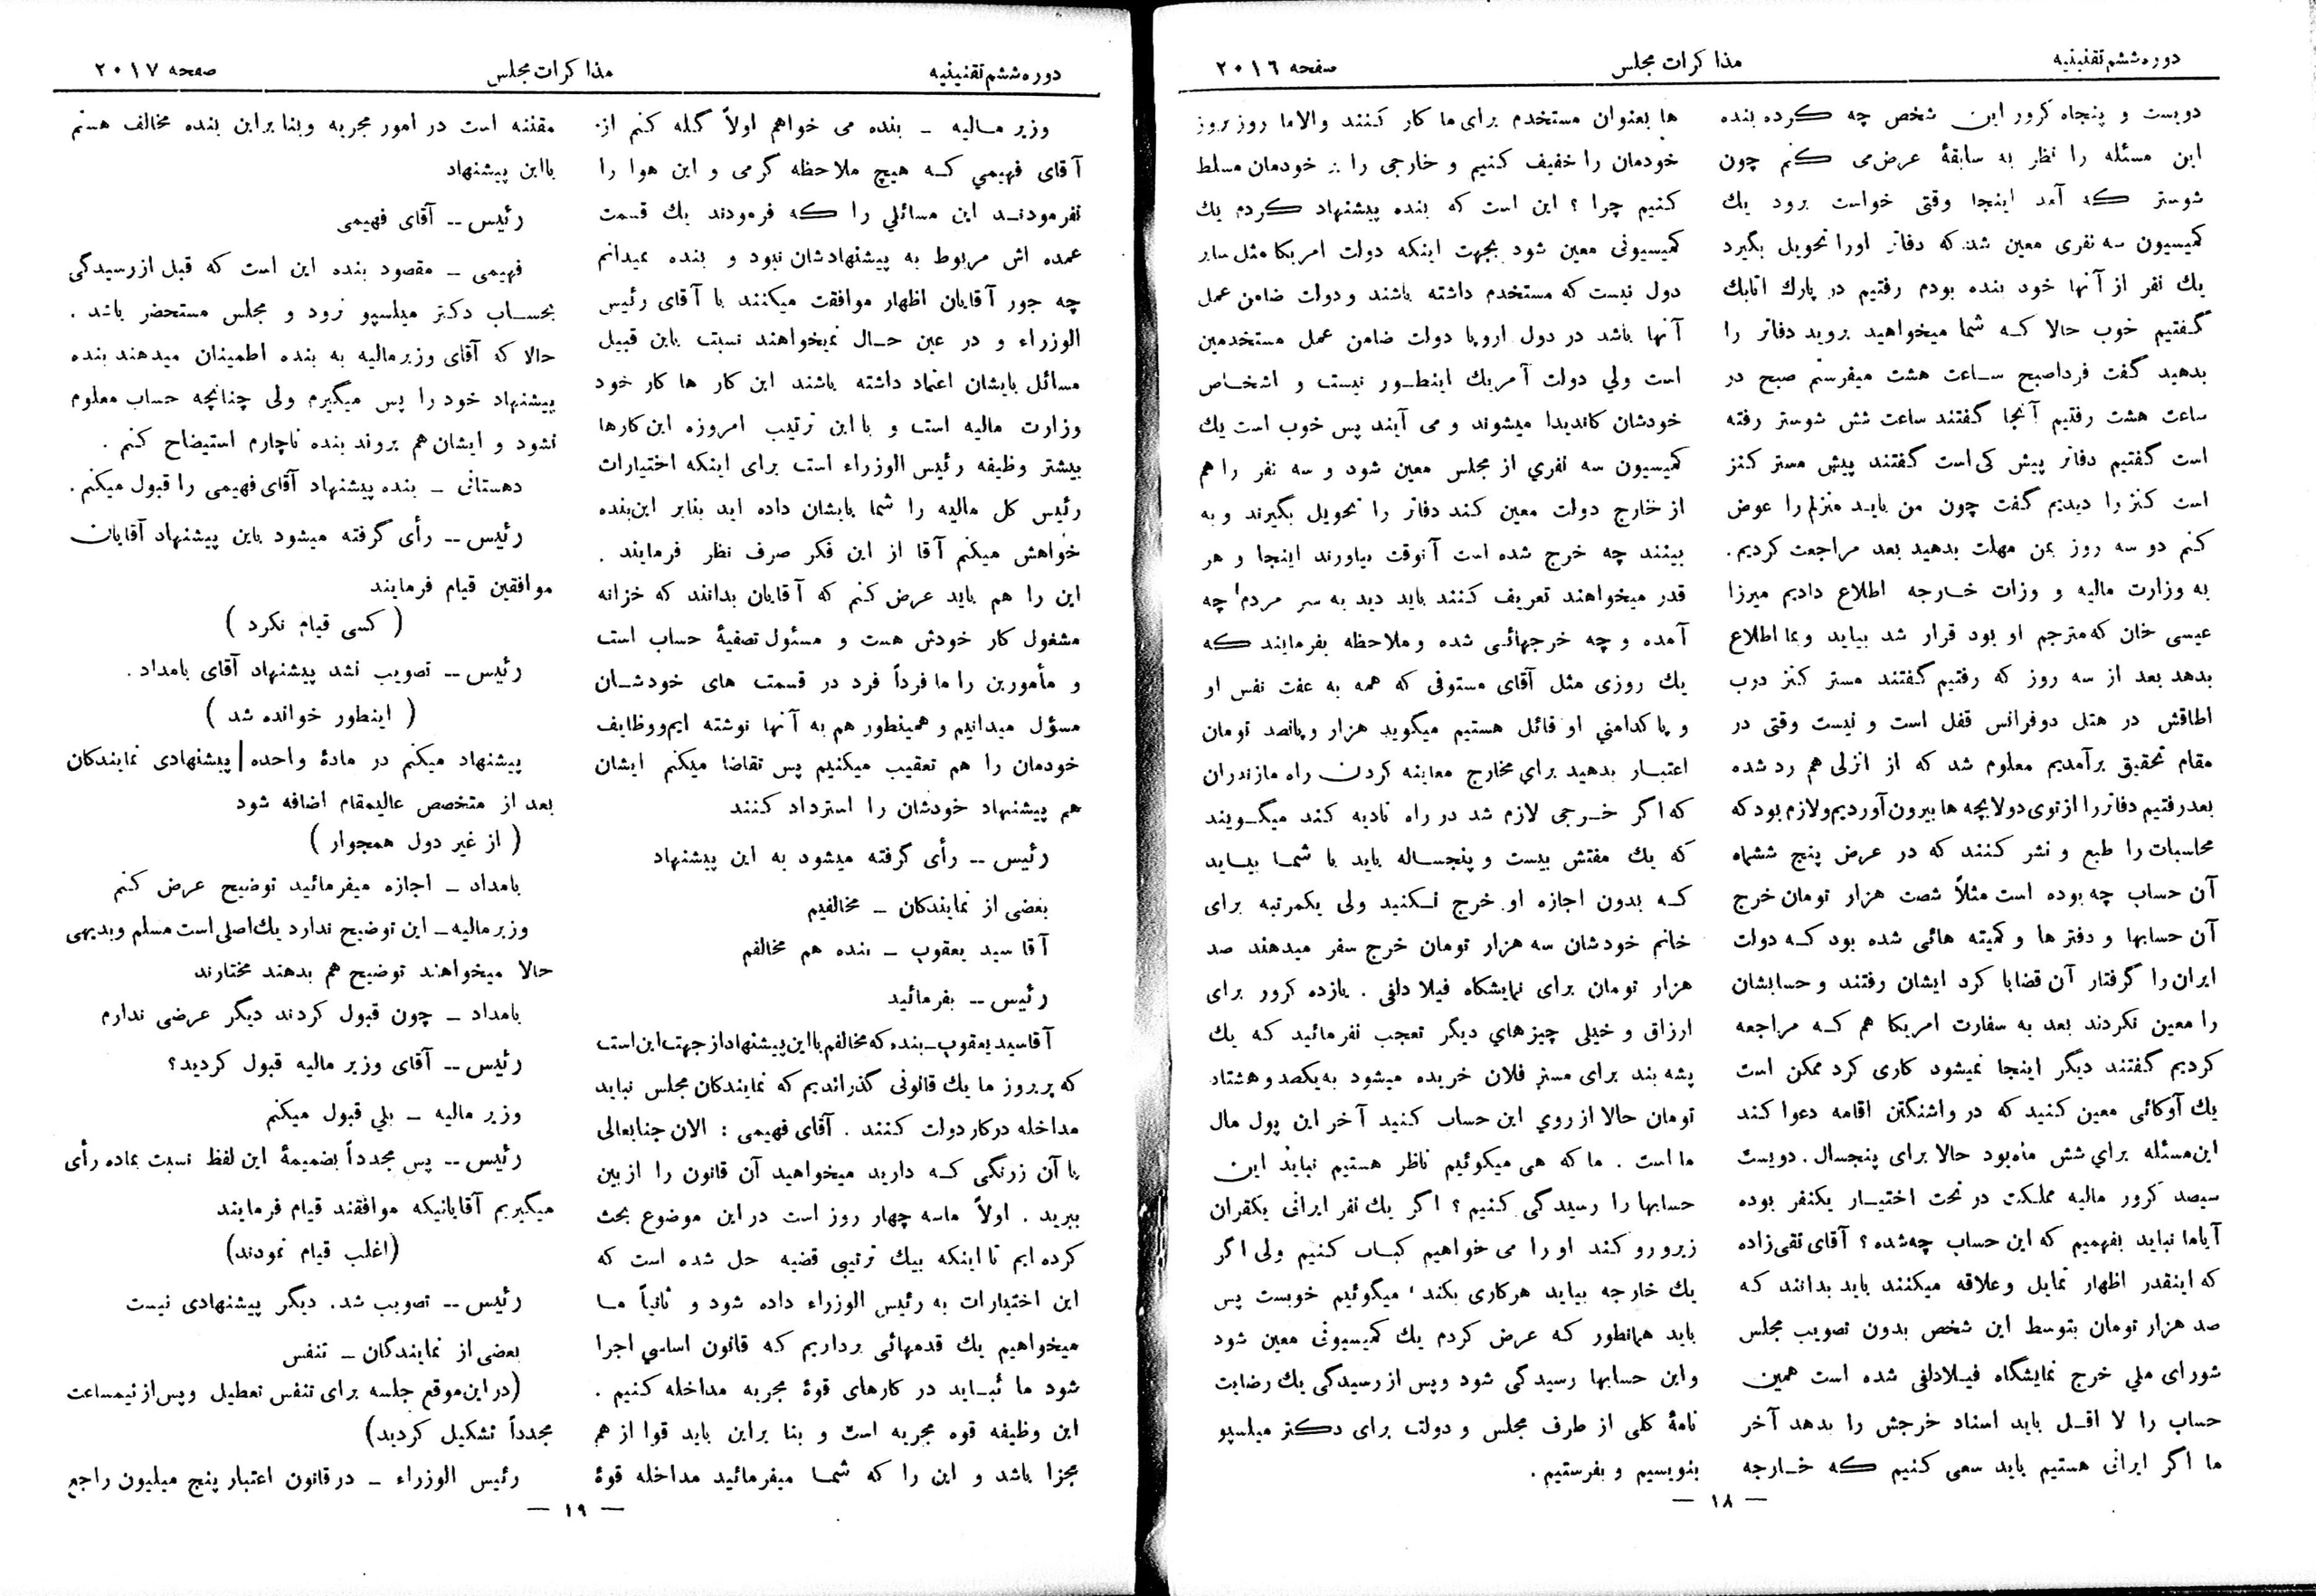 دوره ششم تقنینیه
مذاکرات مجلس
صفحه ۲۰۱٦
دویست و پنجاه کرور این شخص چه کرده بنده
این مسئله را نظر به سابقهٔ عرض می کنم چون
شوستر که آمد اینجا وقتی خواست برود یك
کمیسیون سه نفری معین شد که دفاتر اورا تحویل بگیرد
یك نفر از آنها خود بنده بودم رفتیم در پارك اتابك
گفتیم خوب حالا که شما میخواهید بروید دفاتر را
بدهید گفت فرداصبح ساعت هشت میفرستم صبح در
ساعت هشت رفتیم آنجا گفتند ساعت شش شوستر رفته
است گفتیم دفاتر پیش کی است گفتند پیش مستر کنز
است کنز را دیدیم گفت چون من باید منزلم را عوض
کنم دو سه روز بمن مهلت بدهید بعد مراجعت کردیم.
به وزارت مالیه و وزات خارجه اطلاع دادیم میرزا
عیسی خان که مترجم او بود قرار شد بیاید و بما اطلاع
بدهد بعد از سه روز که رفتیم گفتند مستر کنز درب
اطاقش در هتل دوفرانس قفل است و نیست وقتی در
مقام تحقیق برآمدیم معلوم شد که از انزلی هم رد شده
بعد رفتیم دفاتر را از توی دولابچه ها بیرون آوردیم و لازم بود که
محاسبات را طبع و نشر کنند که در عرض پنج ششماه
آن حساب چه بوده است مثلاً شصت هزار تومان خرج
آن حسابها و دفتر ها و کمیته هائی شده بود که دولت
ایران را گرفتار آن قضایا کرد ایشان رفتند و حسابشان
را معین نکردند بعد به سفارت امریکا هم که مراجعه
کردیم گفتند دیگر اینجا نمیشود کاری کرد ممکن است
یك آوکائی معین کنید که در واشنگتن اقامه دعوا کند
این مسئله برای شش ماه بود حالا برای پنجسال . دویست
سیصد کرور مالیه مملکت در تحت اختیار یکنفر بوده
آیاما نباید بفهمیم که این حساب چه شده؟ آقای تقی زاده
که اینقدر اظهار تمایل وعلاقه میکنند باید بدانند که
صد هزار تومان بتوسط این شخص بدون تصویب مجلس
شورای ملی خرج نمایشگاه فیلادلفی شده است همین
حساب را لا اقل باید اسناد خرجش را بدهد آخر
ما اگر ایرانی هستیم باید سعی کنیم که خارجه
ها بعنوان مستخدم برای ما کار کنند والاما روز بروز
خودمان را خفیف کنیم و خارجی را بر خودمان مسلط
کنیم چرا ؟ این است که بنده پیشنهاد کردم یك
کمیسیونی معین شود بجهت اینکه دولت امریکا مثل سایر
دول نیست که مستخدم داشته باشند و دولت ضامن عمل
آنها باشد در دول اروپا دولت ضامن عمل مستخدمین
است ولی دولت آمریك اینطور نیست و اشخاص
خودشان کاندیدا میشوند و می آیند پس خوب است یك
کمیسیون سه نفری از مجلس معین شود و سه نفر را هم
از خارج دولت معین کند دفاتر را تحویل بگیرند و به
بینند چه خرج شده است آنوقت بیاورند اینجا و هر
قدر میخواهند تعریف کنند باید دید به سر مردم چه
آمده و چه خرجهائی شده و ملاحظه بفرمایند که
یك روزی مثل آقای مستوفی که همه به عفت نفس او
و پاکدامنی او قائل هستیم میگوید هزار و پانصد تومان
اعتبار بدهید برای مخارج معاینه کردن راه مازندران
که اگر خرجی لازم شد در راه تادیه کند میگویند
که یك مفتش بیست و پنجساله باید با شما بیاید
که بدون اجازه او خرج نکنید ولی یکمرتبه برای
خانم خودشان سه هزار تومان خرج سفر میدهند صد
هزار تومان برای نمایشگاه فیلا دلفی . یازده کرور برای
ارزاق و خیلی چیزهای دیگر تعجب نفرمائید که یك
پشه بند برای مستر فلان خریده میشود به یکصد و هشتاد
تومان حالا از روی این حساب کنید آخر این پول مال
ما است . ما که هی میگوئیم ناظر هستیم نباید این
حسابها را رسیدگی کنیم ؟ اگر یك نفر ایرانی یکقران
زیر و رو کند او را می خواهیم کباب کنیم ولی اگر
یك خارجه بیاید هرکاری بکند ، میگوئیم خوبست پس
باید همانطور که عرض کردم یك کمیسیونی معین شود
و این حسابها رسیدگی شود و پس از رسیدگی یك رضایت
نامهٔ کلی از طرف مجلس و دولت برای دکتر میلسپو
بنویسیم و بفرستیم .
— ۱۸ —
دوره ششم تقنینیه
مذاکرات مجلس
صفحه ۲۰۱۷
وزیر مالیه ــ بنده می خواهم اولاً گله کنم از
آقای فهیمی که هیچ ملاحظه گرمی و این هوا را
نفرمودند این مسائلی را که فرمودند یك قسمت
عمده اش مربوط به پیشنهادشان نبود و بنده نمیدانم
چه جور آقایان اظهار موافقت میکنند با آقای رئیس
الوزراء و در عین حال نمیخواهند نسبت باین قبیل
مسائل بایشان اعتماد داشته باشند این کار ها کار خود
وزارت مالیه است و با این ترتیب امروزه این کارها
بیشتر وظیفه رئیس الوزراء است برای اینکه اختیارات
رئیس کل مالیه را شما بایشان داده اید بنابر این بنده
خواهش میکنم آقا از این فکر صرف نظر فرمایند .
این را هم باید عرض کنم که آقایان بدانند که خزانه
مشغول کار خودش هست و مسئول تصفیهٔ حساب است
و مأمورین را ما فرداً فرد در قسمت های خودشان
مسؤل میدانیم و همینطور هم به آنها نوشته ایم و وظایف
خودمان را هم تعقیب میکنیم پس تقاضا میکنم ایشان
هم پیشنهاد خودشان را استرداد کنند
رئیس ــ رأی گرفته میشود به این پیشنهاد
بعضی از نمایندکان ــ مخالفیم
آقا سید یعقوب ــ بنده هم مخالفم
رئیس ــ بفرمائید
آقا سید یعقوب ــ بنده که مخالفم با این پیشنهاد از جهت این است
که پریروز ما یك قانونی گذراندیم که نمایندکان مجلس نباید
مداخله درکار دولت کنند . آقای فهیمی : الان جنابعالی
با آن زرنگی که دارید میخواهید آن قانون را از بین
ببرید . اولاً ماسه چهار روز است در این موضوع بحث
کرده ایم تا اینکه بیك ترتیبی قضیه حل شده است که
این اختیارات به رئیس الوزراء داده شود و ثانیاً ما
میخواهیم یك قدمهائی برداریم که قانون اساسی اجرا
شود ما نباید در کارهای قوهٔ مجریه مداخله کنیم .
این وظیفه قوه مجریه است و بنا براین باید قوا از هم
مجزا باشد و این را که شما میفرمائید مداخله قوهٔ
مقننه است در امور مجریه و بنا براین بنده مخالف هستم
با این پیشنهاد
رئیس ــ آقای فهیمی
فهیمی ــ مقصود بنده این است که قبل از رسیدگی
بحساب دکتر میلسپو نرود و مجلس مستحضر باشد .
حالا که آقای وزیر مالیه به بنده اطمینان میدهند بنده
پیشنهاد خود را پس میگیرم ولی چنانچه حساب معلوم
نشود و ایشان هم بروند بنده ناچارم استیضاح کنم .
دهستانی ــ بنده پیشنهاد آقای فهیمی را قبول میکنم.
رئیس ــ رأی گرفته میشود باین پیشنهاد آقایان
موافقین قیام فرمایند
( کسی قیام نکرد )
رئیس ــ تصویب نشد پیشنهاد آقای بامداد .
( اینطور خوانده شد )
پیشنهاد میکنم در مادهٔ واحده پیشنهادی نمایندکان
بعد از متخصص عالیمقام اضافه شود
( از غیر دول همجوار )
بامداد ــ اجازه میفرمائید توضیح عرض کنم
وزیر مالیه ــ این توضیح ندارد یك اصلی است مسلم و بدیهی
حالا میخواهند توضیح هم بدهند مختارند
بامداد ــ چون قبول کردند دیگر عرضی ندارم
رئیس ــ آقای وزیر مالیه قبول کردید؟
وزیر مالیه ــ بلی قبول میکنم
رئیس ــ پس مجدداً بضمیمهٔ این لفظ نسبت بماده رأی
میگیریم آقایانیکه موافقند قیام فرمایند
(اغلب قیام نمودند)
رئیس ــ تصویب شد. دیگر پیشنهادی نیست
بعضی از نمایندگان ــ تنفس
(در این موقع جلسه برای تنفس تعطیل و پس از نیمساعت
مجدداً تشکیل کردید)
رئیس الوزراء ــ در قانون اعتبار پنج میلیون راجع
— ۱۹ —